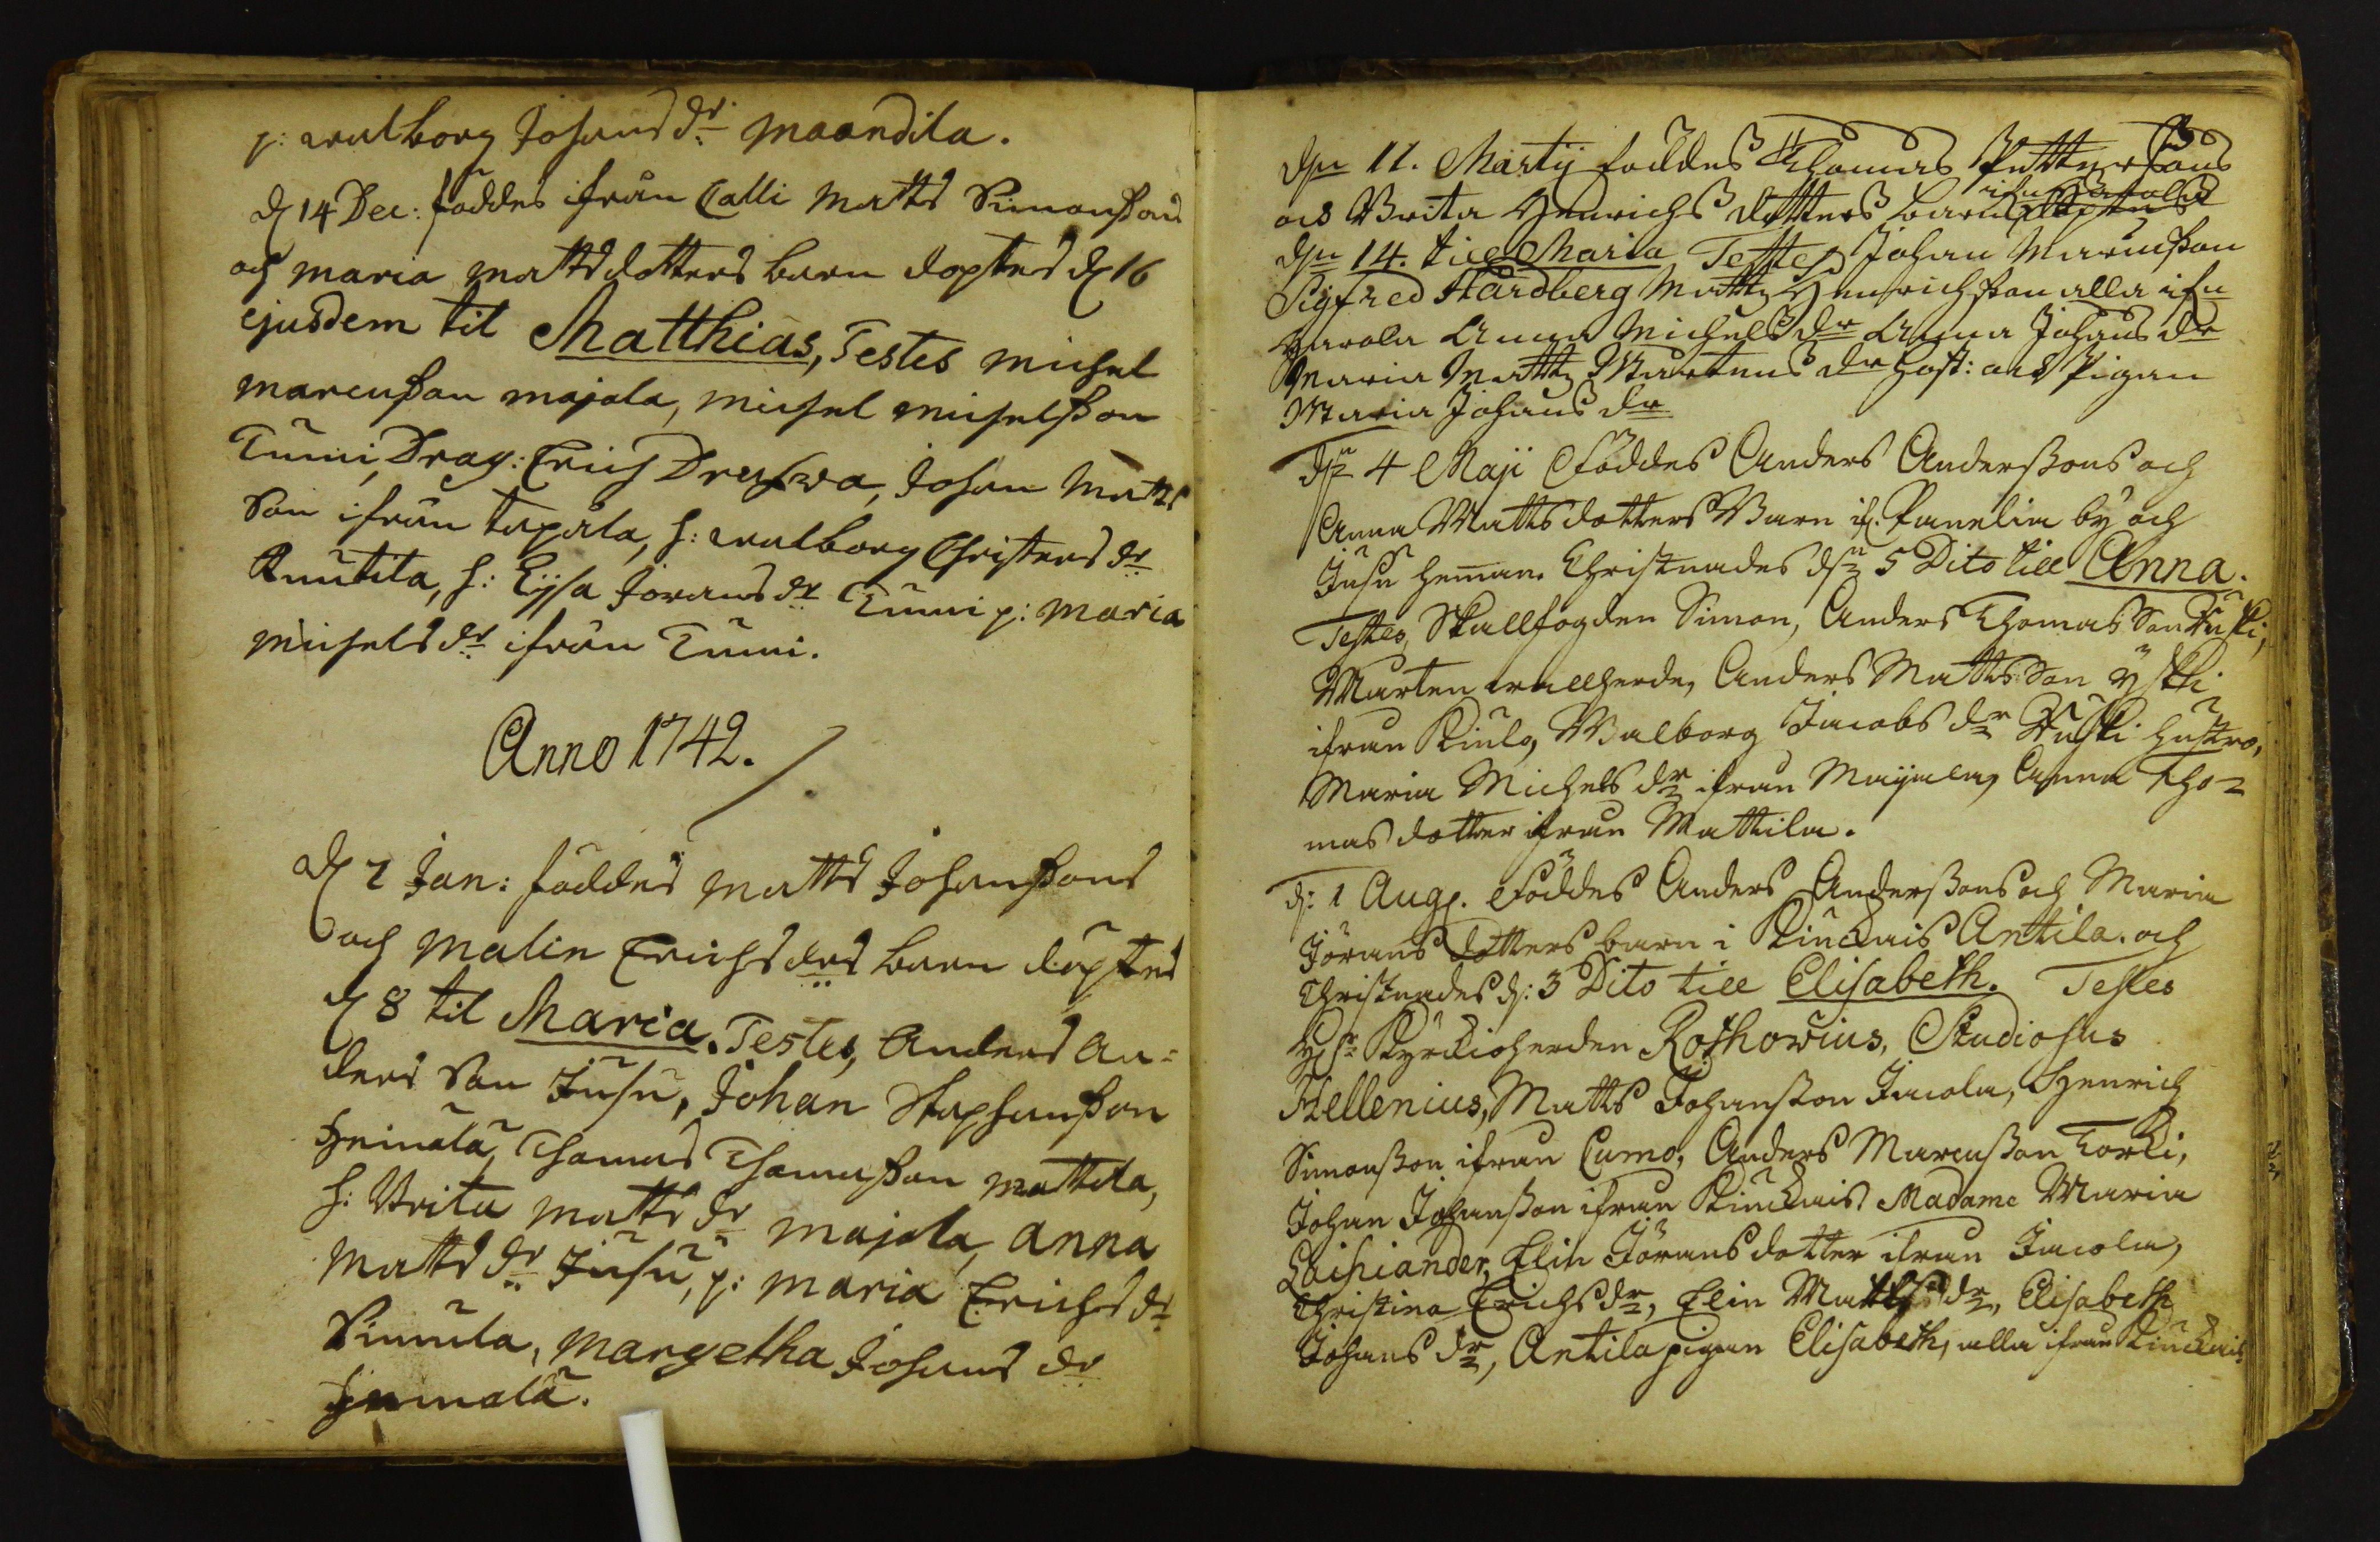 p: walborg Johans dr Maandila.
d 14 Dec: föddes ifrån Calli Matts Simonssons
och Maria Mattsdotters barn döptes d 16
ejusdem til Matthias, Testes Michel
Marcusson Majala, Michel Michelsson
Tumi, Drag: Erich Johan Matts
Son ifrån tapala, h: walborg Christers dr
Knutila, h: Lijsa Jörans dr Tumi p: Maria
Michels dr ifrån Tumi.
Anno 1742.
d 7 Jan: föddes Matts Johanssons
och Malin Erichs drs barn döptes
d 8 til Maria. Testes, Anders An=
ders Son Jusu, Johan Staphansson
Heinala, Thomas Thomasson Mattila,
h: Brita Matts dr Majala, Anna
Matts dr Jusu, p: Maria Erichs dr
Simula, Margetha Johans dr
Heinala.
den 11. Martij föddes Thomas Pettersons
och Brita Henrichs dotters barn
den 14. till Maria Testes Johan Marcusson
Sigfred Hardberg Matts Henrichsson alla ifn
Anna Michels dr Anna Johans dr
Maria Matts Martens dr hust: och Pigan
Maria Johans dr
dn 4 Maji Föddes Anders Anderssons och
Anna Mattsdotters Barn if. Panelia by och
Jusu heman. Christnades dn 5 Dito till Anna.
Testes, Skallfogden Simon, Anders Thomas Son
Marten wallherde, Anders Matts Son Yskli
ifran Kiulo, Walborg Jacobs dr hustro,
Maria Michels dr ifran Majala, Anna Tho=
mas dotter ifran Mattila.
d: 1 Aug. Föddes Anders Anderssons och Maria
Jörans dotters barn i Kiuckais Antila. och
Christnades d: 3 Dito till Elisabeth. Testes
H. Hr Kyrckioherden Rothowius, Studiosus
Hellenius, Matts Johansson Jacola, Henrich
Simonsson ifran Cumo, Anders Marcusson Torki,
Johan Johansson ifran Kiuckais Madame Maria
Laihiander, Elin Jörans dotter ifran Jacola,
Christina Erichs dr, Elin Matts dr, Elisabeth
Johans dr, Antila pigan Elisabeth, alla ifran Kiuckais